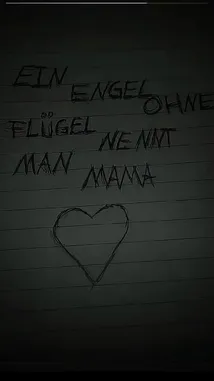 EIN ENGEL OHNE
FLÜGEL NENNT
MAN MAMA